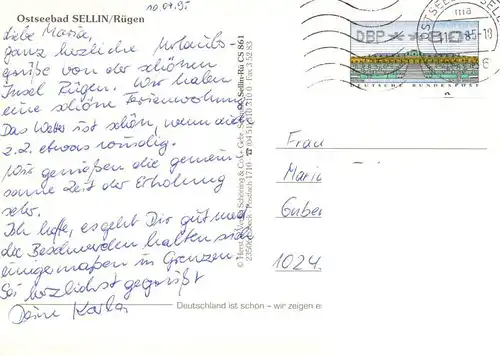 10.09.95
Ostseebad SELLIN/Rügen
Liebe Maria,
ganz herzliche Urlaubs-
grüße von der schönen
Insel Rügen. Wir haben
eine schöne Ferienwohnung
Das Wetter ist schön, wenn
z.Z. etwas
Wir genießen die gemein-
same Zeit der Erholung
sehr.
Ich hoffe, es geht Dir gut und
die Beschwerden halten sich
einigermaßen in Grenzen.
Sei herzlichst gegrüßt
Deine Karla
Sellin-Rü CS 861
Schöning & Co
Postfach 1710
Deutschland ist schön – wir zeigen e
DBP
DEUTSCHE BUNDESPOST
OSTSEEB SELLIN
Frau
Mari
Guber
1024